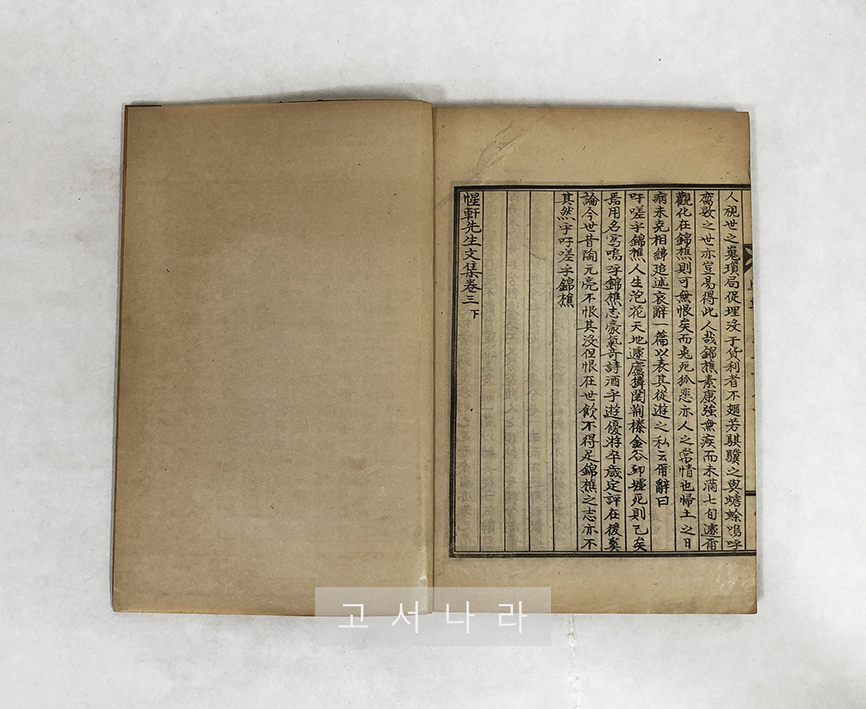 人視世之嵬瑣局促埋沒于貨利者不翅若騏驥之與蟾蜍嗚呼
腐敗之世亦豈易得此人哉錦樵素康強無疾而未滿七旬遽爾
觀化在錦樵則可無恨矣而兎死狐悲亦人之常情也歸土之日
病未克相紼追述哀辭一篇以表其從遊之私云爾辭曰
吁嗟乎錦樵人生泡花天地蘧廬荊榛金谷邱墟死則已矣
焉用名爲嗚呼錦樵志豪氣奇詩酒乎遊優游卒歲定評在後奚
論今世昔陶元亮不恨其沒但恨在世飮不得足錦樵之志亦不
其然乎吁嗟乎錦樵
惺軒先生文集卷三 下
고서나라